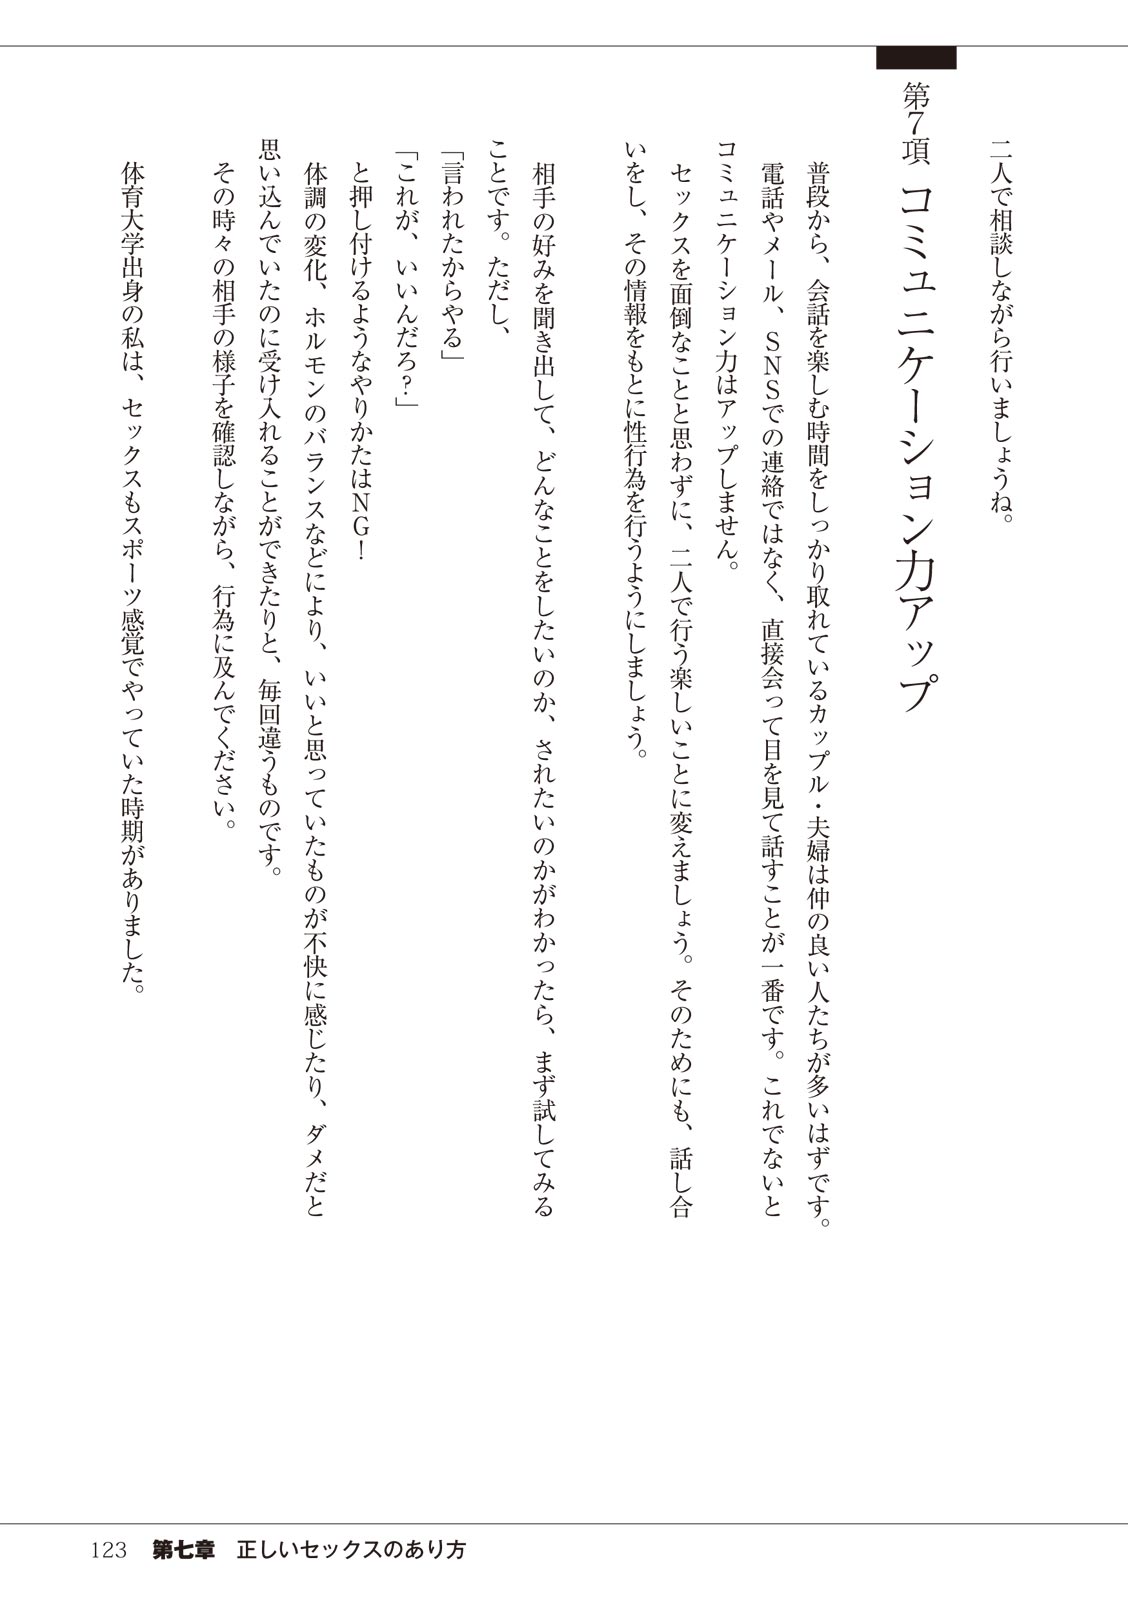 二人で相談しながら行いましょうね。
第7項 コミュニケーション力アップ
普段から、会話を楽しむ時間をしっかり取れているカップル・夫婦は仲の良い人たちが多いはずです。
電話やメール、SNSでの連絡ではなく、直接会って目を見て話すことが一番です。これでないと
コミュニケーション力はアップしません。
セックスを面倒なことと思わずに、二人で行う楽しいことに変えましょう。そのためにも、話し合
いをし、その情報をもとに性行為を行うようにしましょう。
相手の好みを聞き出して、どんなことをしたいのか、されたいのかがわかったら、まず試してみる
ことです。ただし、
「言われたからやる」
「これが、いいんだろ?」
と押し付けるようなやりかたはNG!
体調の変化、ホルモンのバランスなどにより、いいと思っていたものが不快に感じたり、ダメだと
思い込んでいたのに受け入れることができたりと、毎回違うものです。
その時々の相手の様子を確認しながら、行為に及んでください。
体育大学出身の私は、セックスもスポーツ感覚でやっていた時期がありました。
123 第七章 正しいセックスのあり方